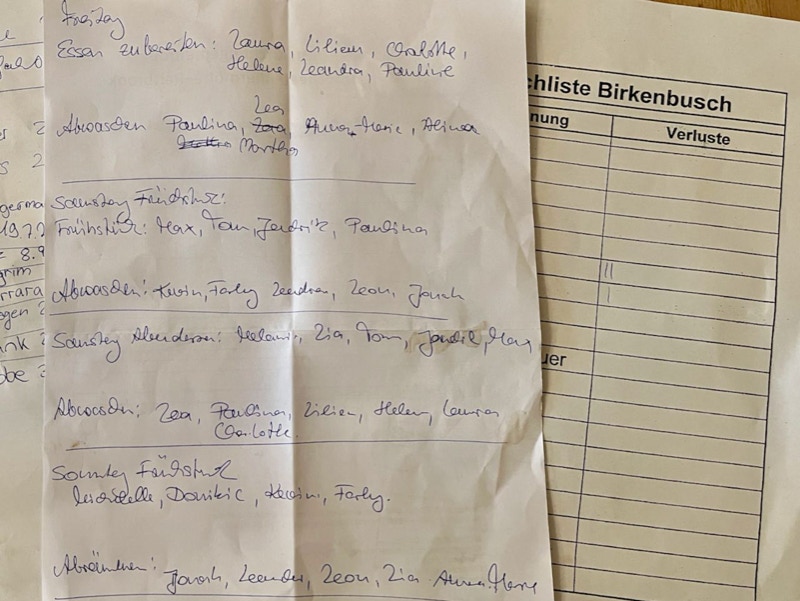 Freitag
Essen zubereiten: Laura, Lilien, Charlotte,
Helene, Leandra, Pauline
Lea
Abwaschen Paulina, Anna-Marie, Alina
Martha
Samstag Frühstück:
Frühstück: Max, Tom, Jendrik, Paulina
Abwaschen: Kevin, Farly Leandra, Leon, Jonah
Samstag Abendessen: Melanie, Lia, Tom, Jendrik, Max
Abwaschen: Lea, Paulina, Lilien, Helen, Laura
Charlotte
Sonntag Frühstück
Dominic, Kevin, Farly.
Abräumen: Jonah, Leander, Leon, Lia Anna-Marie
chliste Birkenbusch
nung Verluste
uer